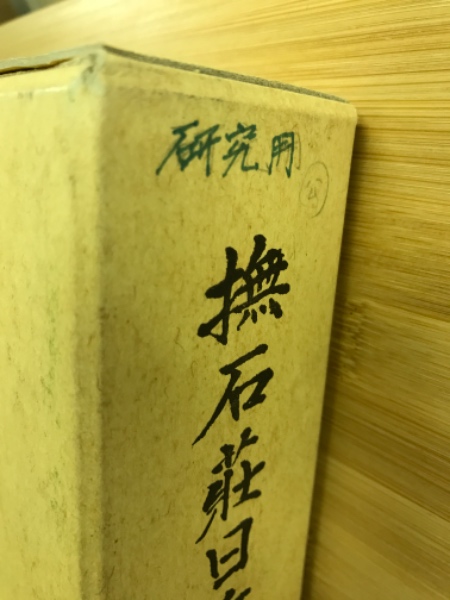 研究用
撫石莊日